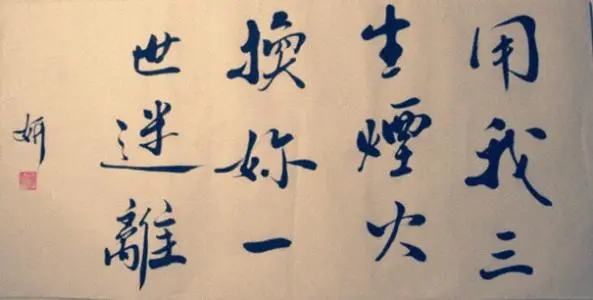 用我三
生煙火
換妳一
世迷離
妍